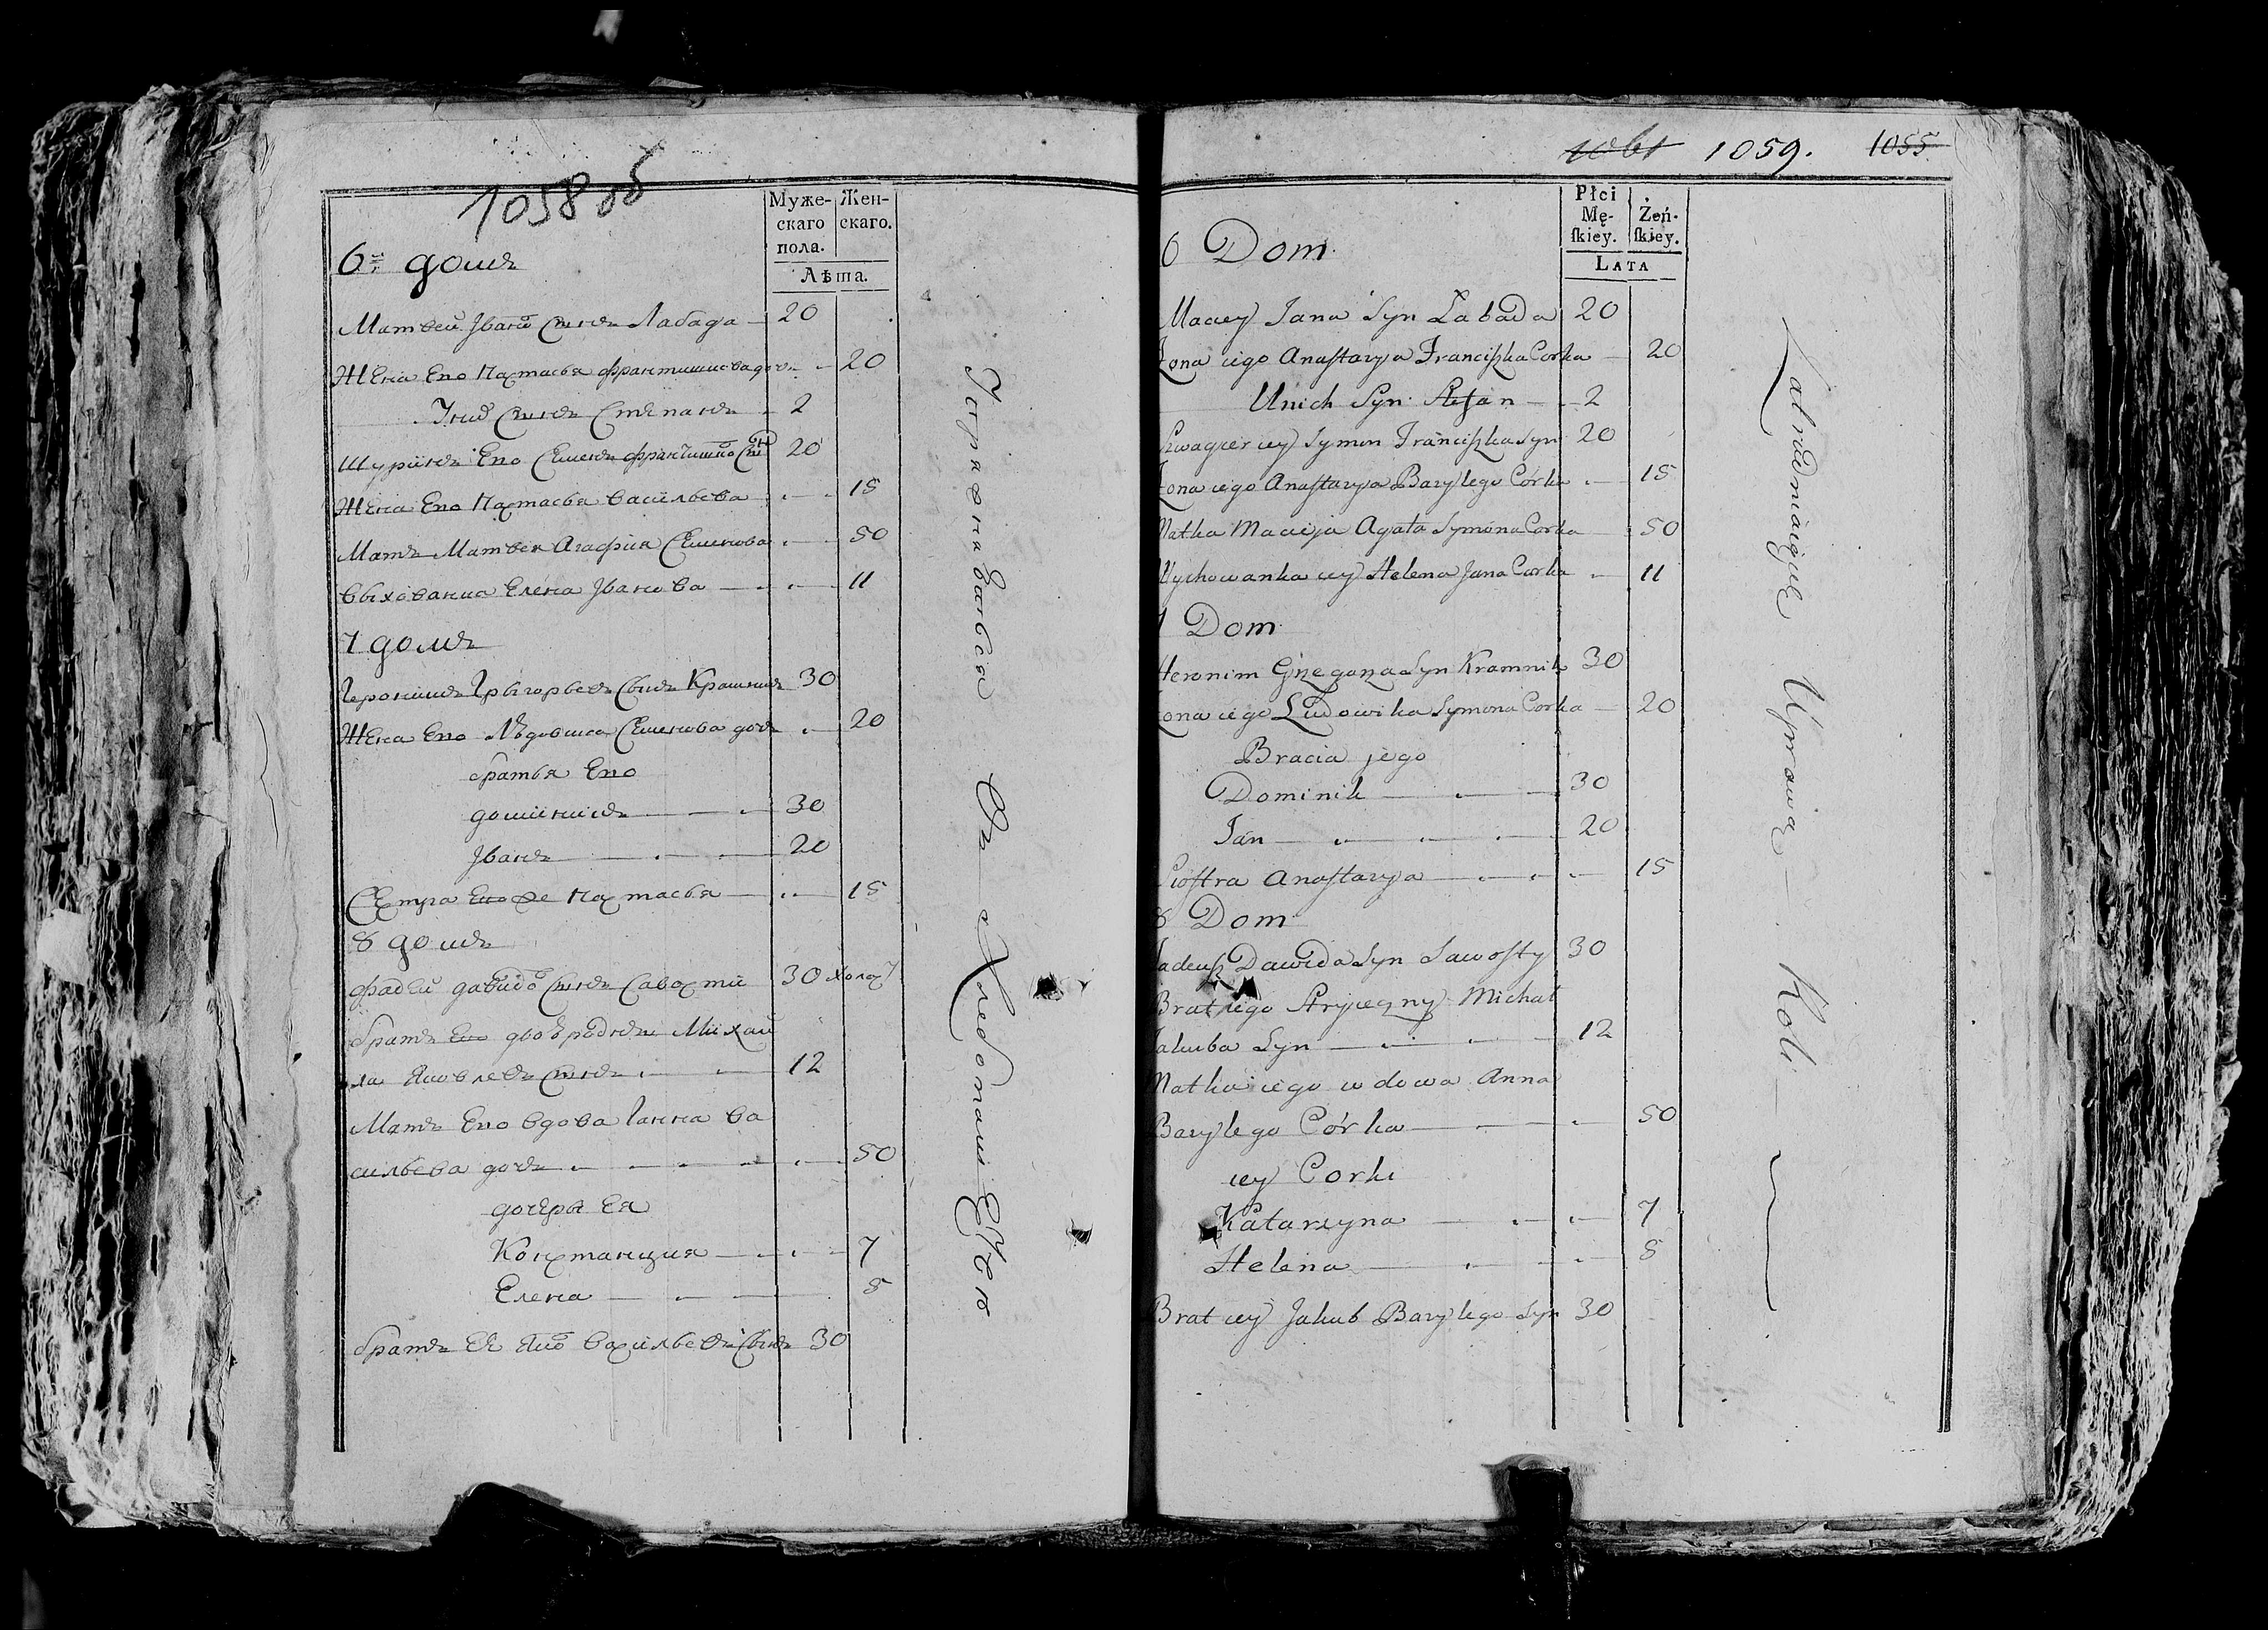 1058 об
Муже-
скаго
пола.
Жен-
скаго.
Лѣта.
6й домъ
Матвей Iвано Сынъ Лабада 20
Жена Ево Настасья францишкова дочь 20
Ихъ Сынъ Степанъ 2
Шуринъ Ево Семенъ францишко Сын 20
Жена Ево Настасья васильева 15
Мать Матвея Агафия Семенова 50
выхованка Елена Iванова 11
7 домъ
Iеронимъ Грыгорьевъ Сынъ Крамникъ 30
Жена Ево Людовика Семенова дочь 20
братья Ево
доминикъ 30
Iванъ 20
Сестра Ево же Настасья 15
8 домъ
фадей давидо Сынъ Савости 30 холост
братъ Ево двоюродны Михай
ла Яковлевъ Сынъ 12
Мать Ево вдова Ганна ва
сильева дочь 50
дочеры Ея
Констанция 7
Елена 5
братъ Ея Яко васильевъ Сынъ 30
1061 1059. 1055
Płci
Mę-
ſkiey.
Żeń-
ſkiey.
LATA
6 Dom
Maciey Jana Syn Łabada 20
Żona iego Anaſtazya Franciſzka Corka 20
Unich Syn Stefan 2
Szwagier iey Symon Franciſzka Syn 20
Żona iego Anaſtazya Bazylego Córka 15
Matka Macieja Agata Symona Corka 50
Wychowanka iey Helena Jana Corka 11
7 Dom
Heronim Grzegorza Syn Kramnik 30
Żona iego Ludowika Symona Corka 20
Bracia jego
Dominik 30
Jan 20
Sioſtra Anaſtazya 15
8 Dom
Tadeuſz Dawida Syn Sawoſty 30
Brat iego Stryieczny Michał
Jakuba Syn 12
Matka iego wdowa Anna
Bazylego Córka 50
iey Corki
Katarzyna 7
Helena 5
Brat iey Jakub Bazylego Syn 30
Zatrudniaiące Uprawią Roli